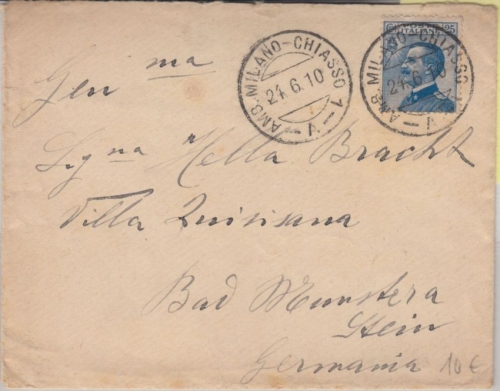 AMB. MILANO-CHIASSO 1
24.6.10
V.
AMB. MILANO-CHIASSO 1
24.6.10
V.
25
Gen ma
Signa Hella Bracht
Villa Quisisana
Bad Munstera
Stein
Germania
10€